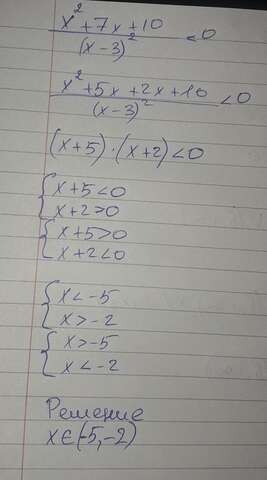 x² + 7x + 10
(x - 3)² < 0
x² + 5x + 2x + 10
(x - 3)² < 0
(x + 5) · (x + 2) < 0
{ x + 5 < 0
x + 2 > 0
{ x + 5 > 0
x + 2 < 0
{ x < -5
x > -2
{ x > -5
x < -2
Решение
x ∈ (-5, -2)